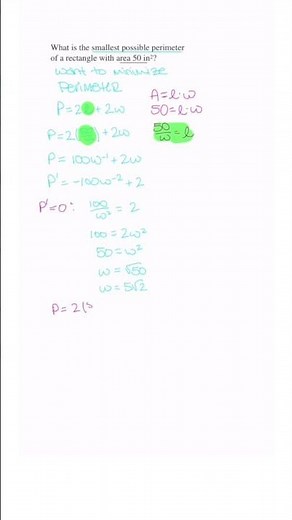 What is the smallest possible perimeter
of a rectangle with area 50 in²?
WANT TO MINIMIZE
PERIMETER
A=l·w
P=2l+2w
50=l·w
P=2(50/w)+2w
50/w=l
P=100w⁻¹+2w
P'=-100w⁻²+2
P'=0: 100/w²=2
100=2w²
50=w²
w=√50
w=5√2
P=2(5